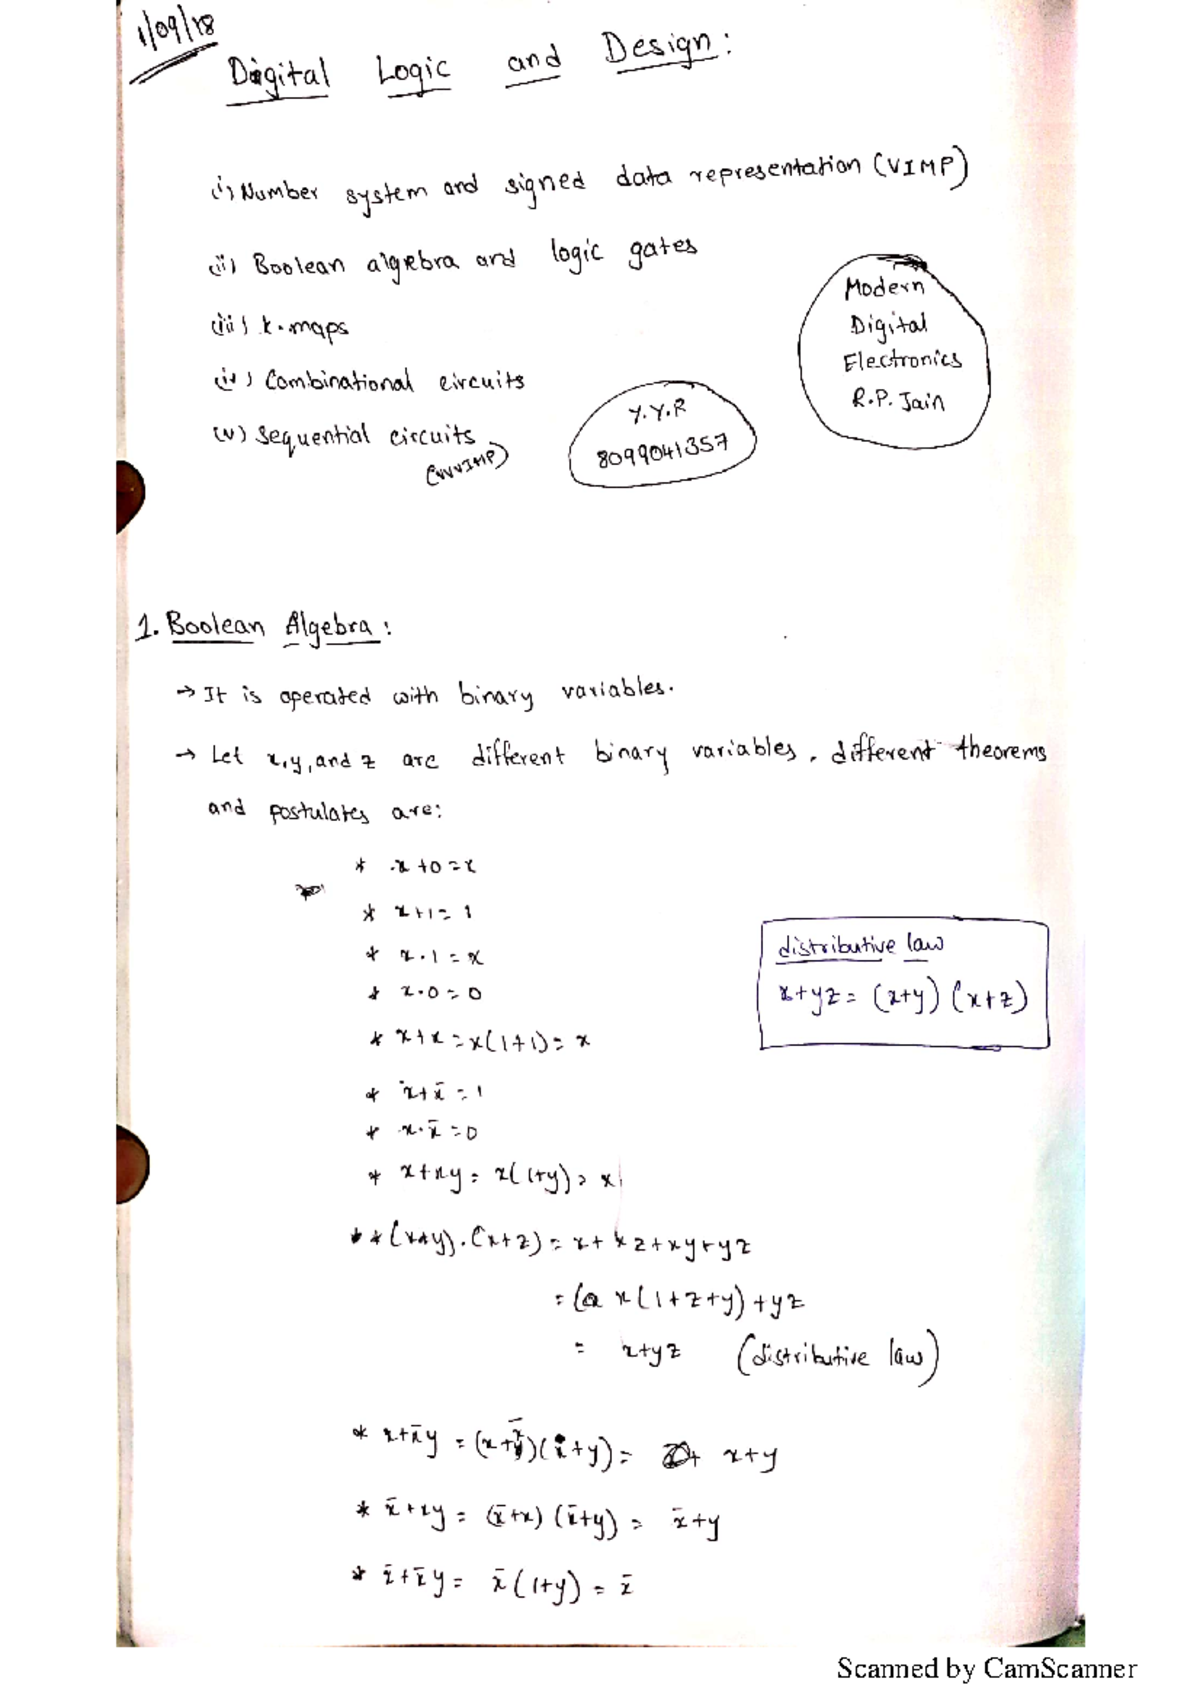 1/09/18
Digital Logic and Design:
i) Number system and signed data representation (VIMP)
ii) Boolean algebra and logic gates
iii) k-maps
iv) Combinational circuits
(v) Sequential circuits
(VVVIMP)
Y.Y.R
8099041357
Modern
Digital
Electronics
R.P. Jain
1. Boolean Algebra:
→ It is operated with binary variables.
→ Let x,y,and z are different binary variables, different theorems
and postulates are:
* x+0=x
* x+1=1
* x.1=x
* x.0=0
* x+x=x(1+1)=x
* x+x̄=1
* x.x̄=0
* x+xy=x(1+y)=x
distributive law
x+yz=(x+y)(x+z)
* *(x+y).(x+z)=x+xz+xy+yz
= x(1+z+y)+yz
= x+yz (distributive law)
* x+x̄y=(x+x̄)(x+y)= x+y
* x̄+xy=(x̄+x)(x̄+y)= x̄+y
* x̄+x̄y= x̄(1+y)=x̄
Scanned by CamScanner